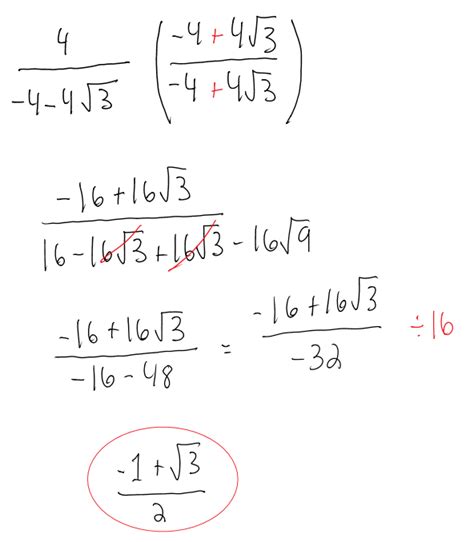 4/(-4-4√3) ((-4+4√3)/(-4+4√3))
(-16+16√3)/(16-16√3+16√3-16√9)
(-16+16√3)/(-16-48) = (-16+16√3)/(-32) ÷16
(-1+√3)/2